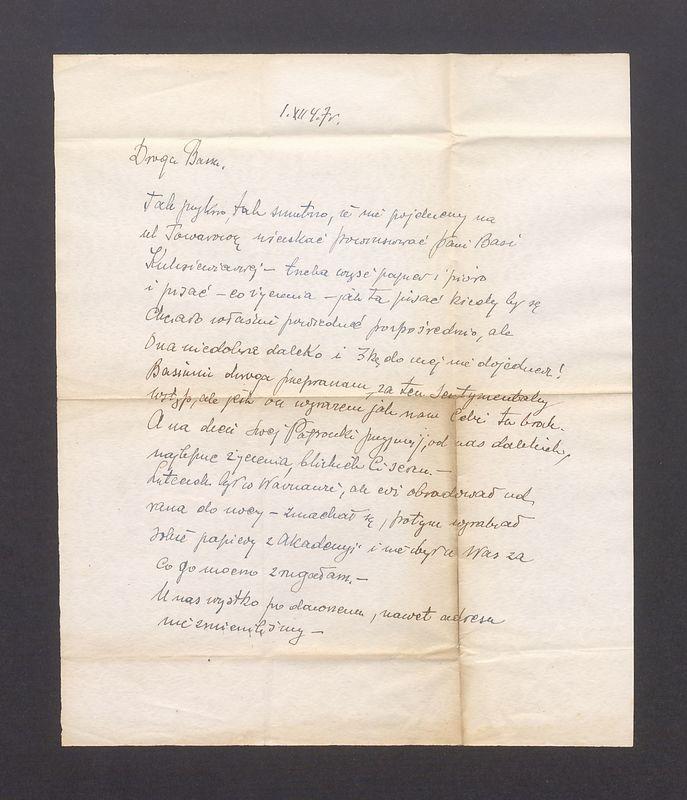 1. XII 47r.
Droga Basiu.
Tak przykro, tak smutno, że nie pojedziemy na
ul Towarową uściskać powinszować pani Basi
trzeba wziąść papier i pióro
i pisać – co życzenia – jak tu pisać kiedy by się
chciało właśnie powiedzieć bezpośrednio, ale
Ona niedobra daleko i 3ką do niej nie dojedzie!
Basiuniu droga przepraszam, za ten sentymentalny
wstęp, ale jest on wyrazem jak nam Ciebie tu brak.
A na dzień Swej Patronki przyjmij, od nas dalekich,
najlepsze życzenia, bliskich Ci sercem. –
był w Warszawie, ale coś obradował od
rana do nocy – zmachał się, potym wyrabiał
sobie papiery z Akademji i nie był u Was za
co go mocno zrugałam. –
U nas wszystko po dawnemu, nawet adresu
nie zmieniliśmy –